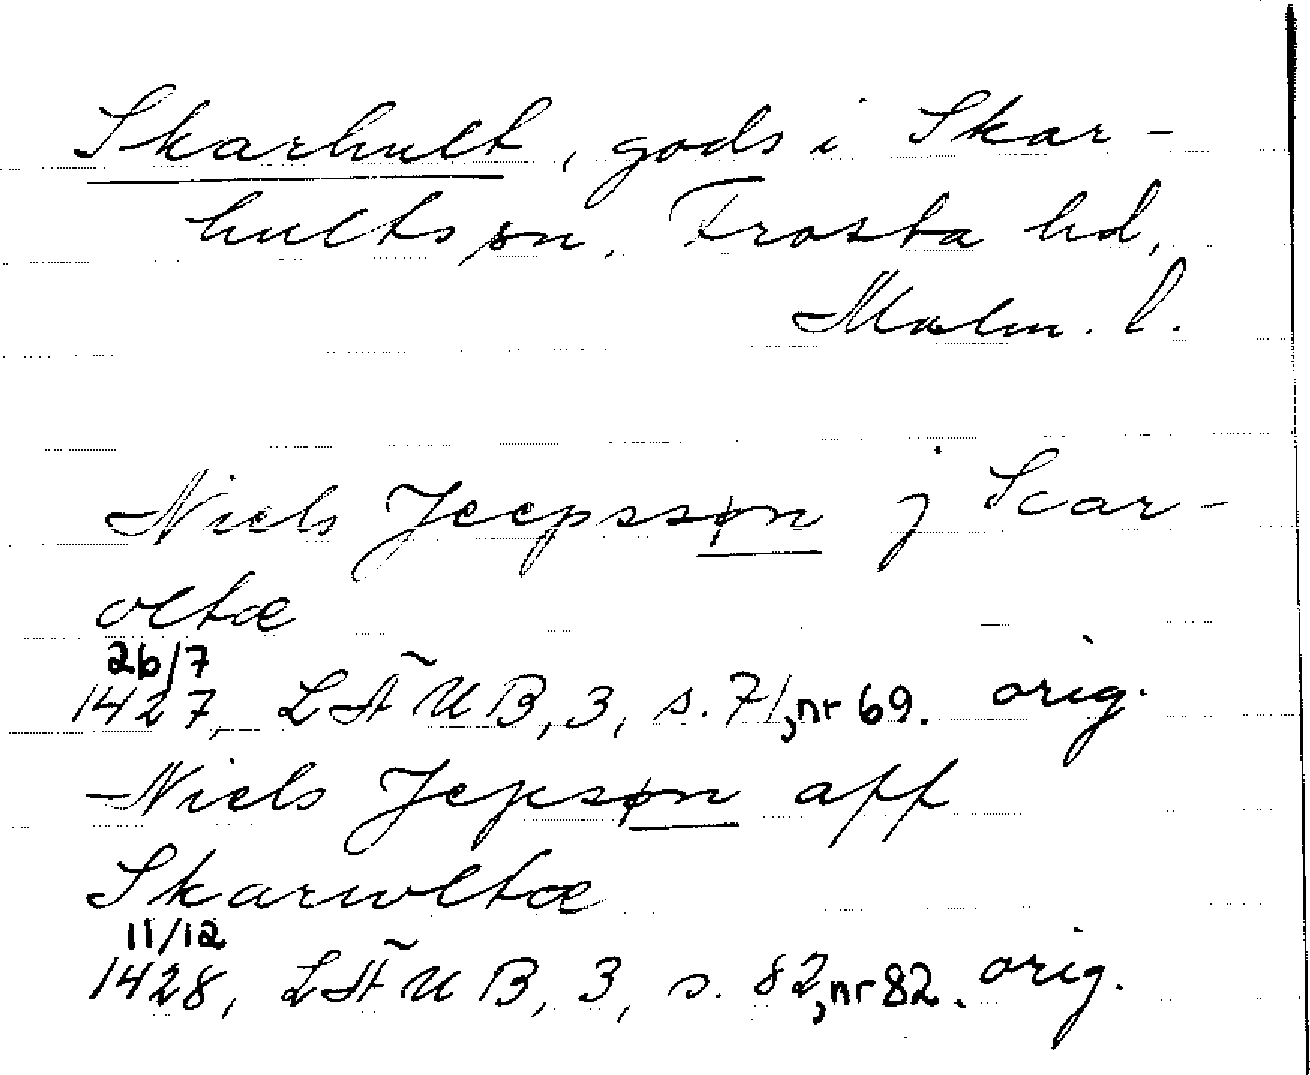 Skarhult, gods i Skar-
hults sn. Frosta hd,
Malm. l.
Niels Jeepssøn j Scar-
oltæ
26/7
1427, LÄUB, 3, s. 71, nr 69. orig.
Niels Jepssøn aff
Skarwoltæ
11/12
1428, LÄUB, 3, s. 82, nr 82. orig.